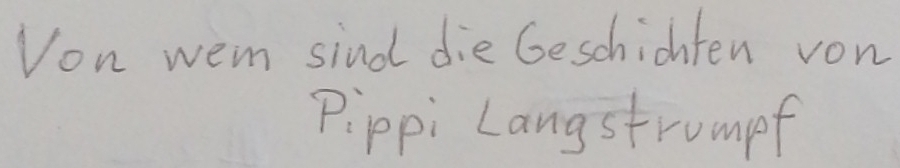 Von wem sind die Geschichten von
Pippi Langstrumpf